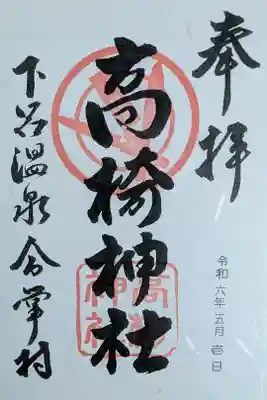 奉拝
高椅神社
下呂温泉合掌村
令和六年五月壱日